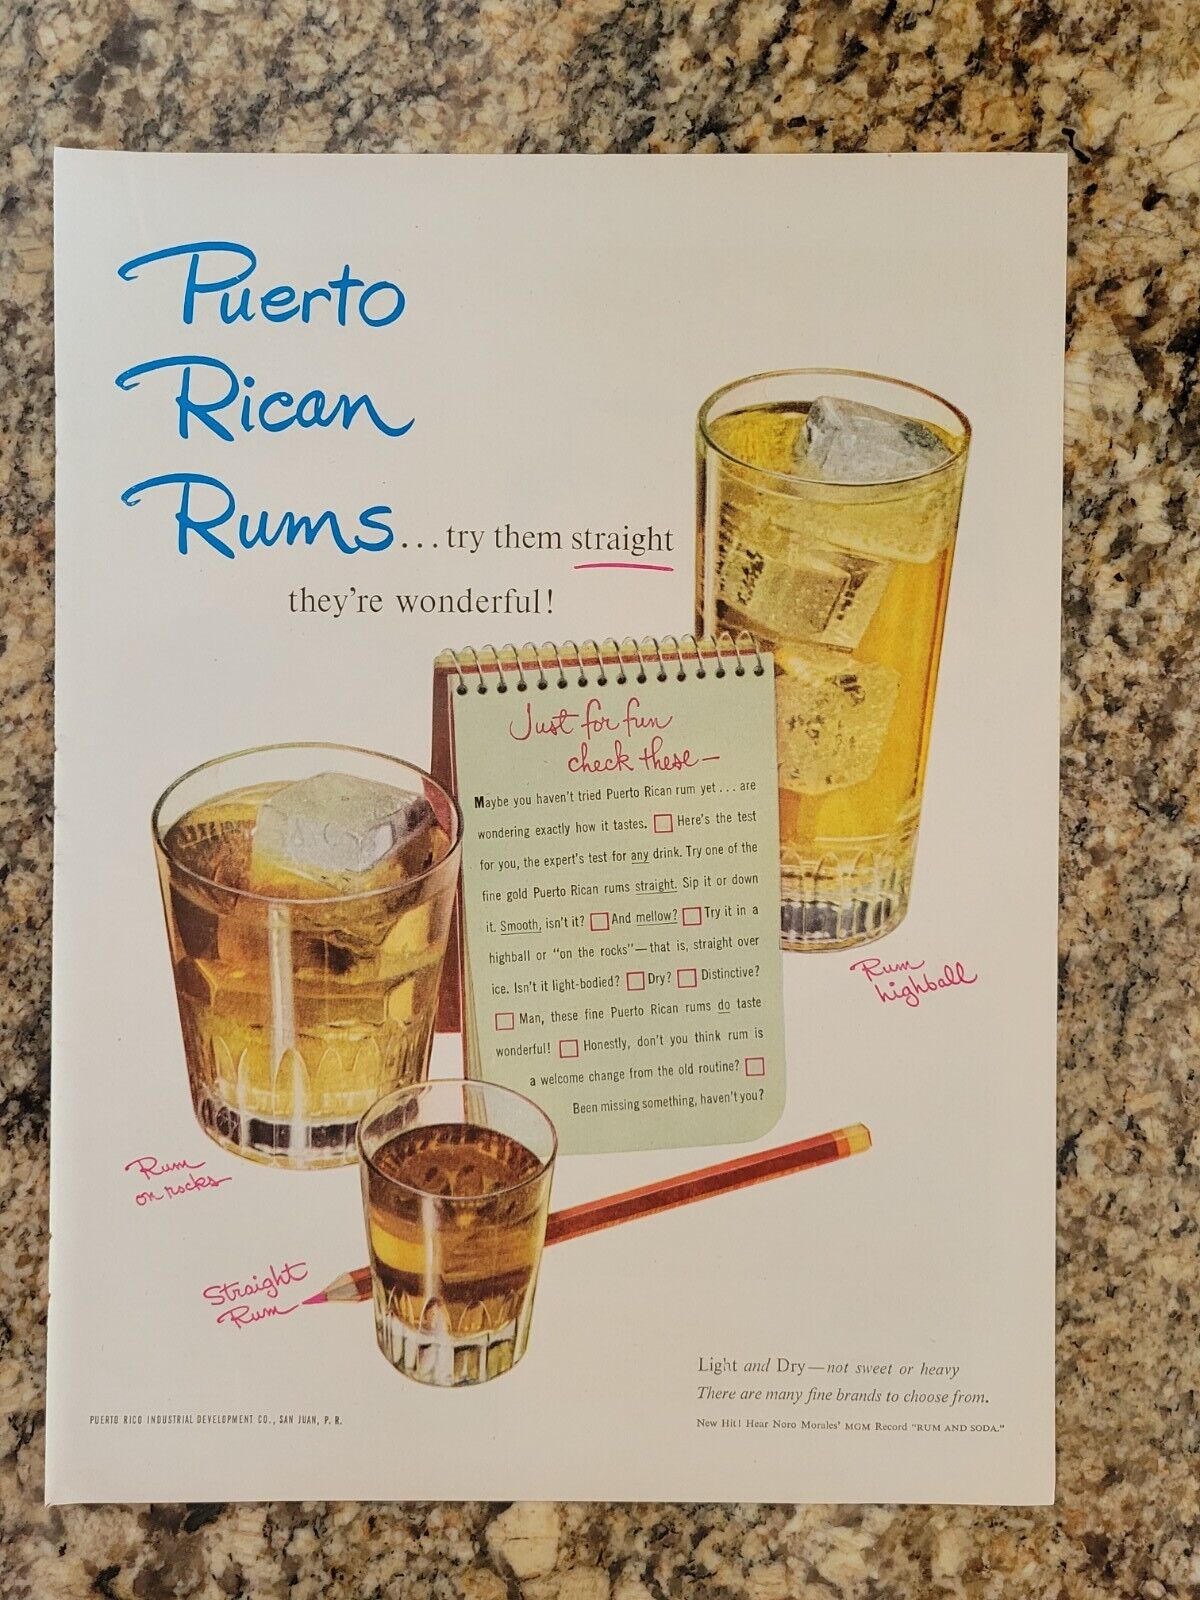 Puerto
Rican
Rums...try them straight
they're wonderful!
Just for fun
check these—
Maybe you haven't tried Puerto Rican rum yet... are
wondering exactly how it tastes. □ Here's the test
for you, the expert's test for any drink. Try one of the
fine gold Puerto Rican rums straight. Sip it or down
it. Smooth, isn't it? □ And mellow? □ Try it in a
highball or "on the rocks"—that is, straight over
ice. Isn't it light-bodied? □ Dry? □ Distinctive?
□ Man, these fine Puerto Rican rums do taste
wonderful! □ Honestly, don't you think rum is
a welcome change from the old routine? □
Been missing something, haven't you?
Rum
highball
Rum
on rocks
Straight
Rum
Light and Dry—not sweet or heavy
There are many fine brands to choose from.
New Hit! Hear Noro Morales' MGM Record "RUM AND SODA."
PUERTO RICO INDUSTRIAL DEVELOPMENT CO., SAN JUAN, P. R.